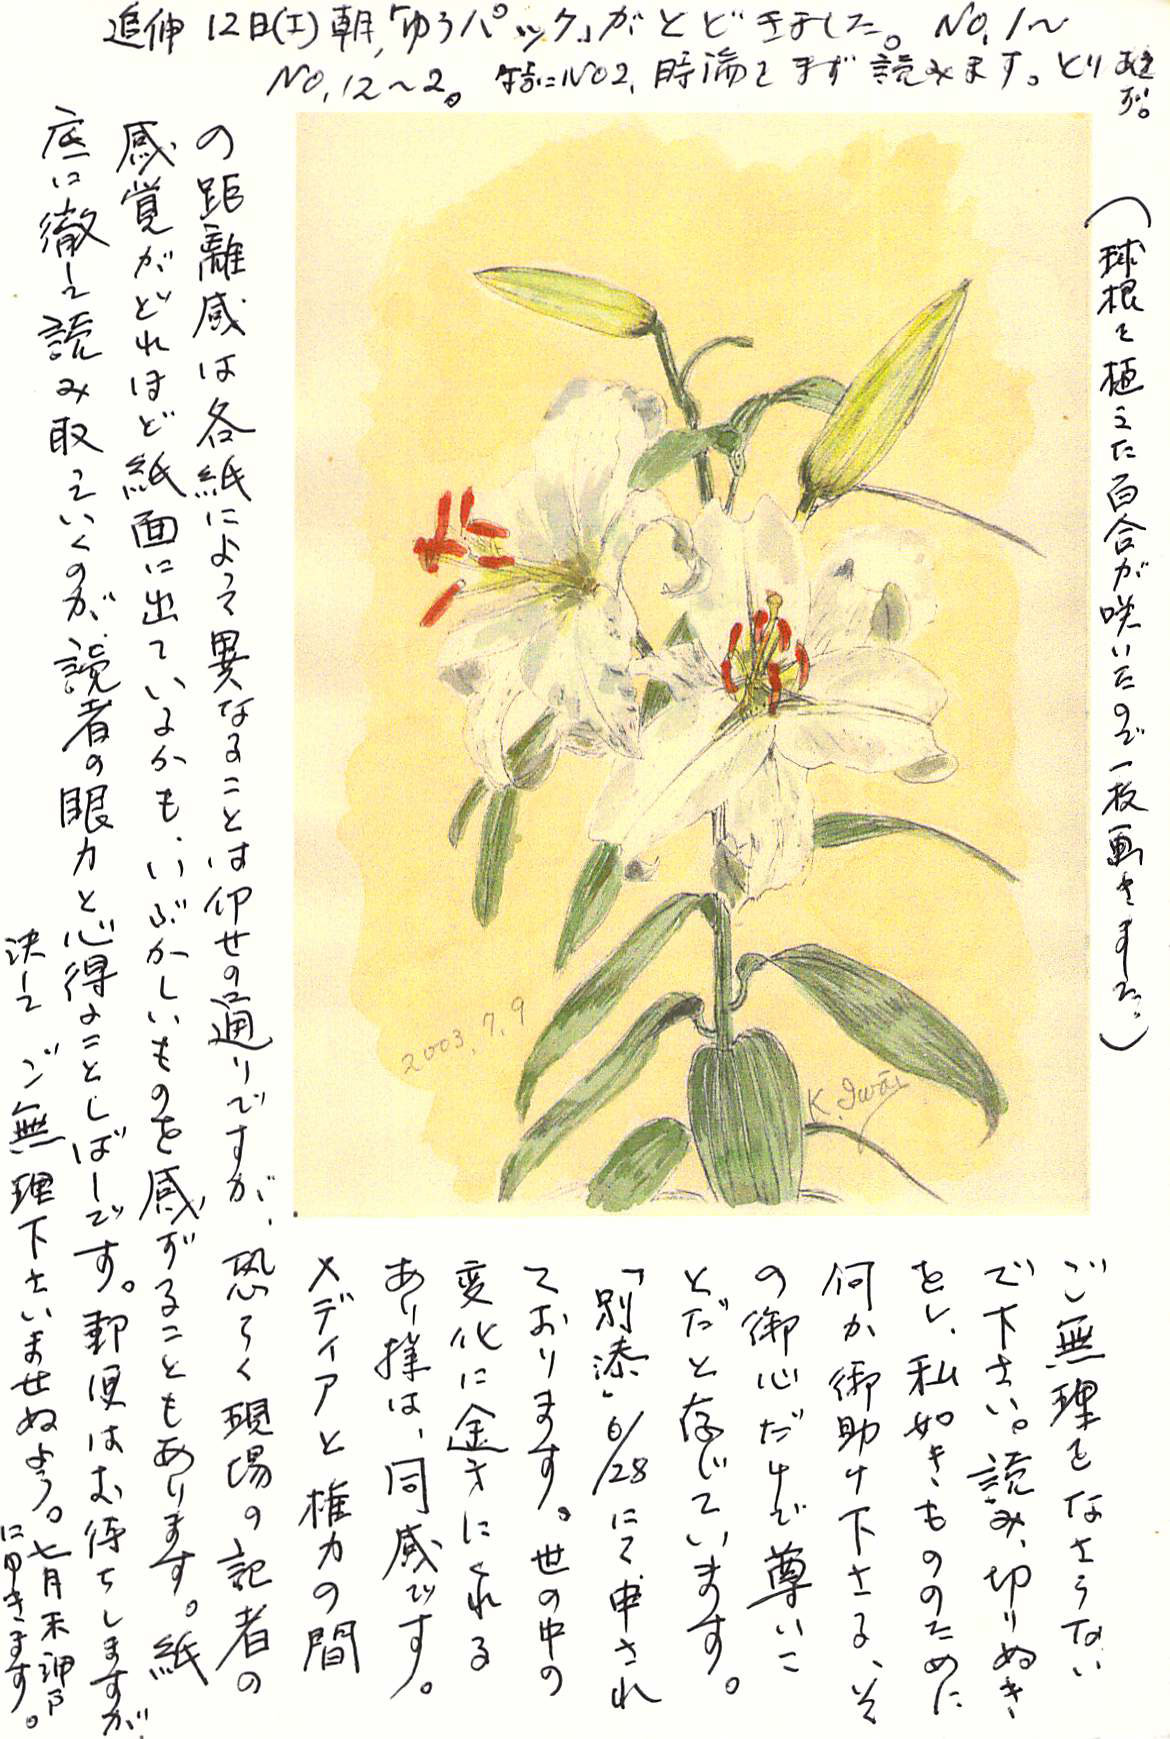 追伸 12日(土)朝,「ゆうパック」がとどきました。No,1〜
No,12〜2。特にNo2,時論をまず読みます。とり急ぎ。
(球根を植えた百合が咲いたので一枚画きました。)
ご無理をなさらない
で下さい。読み、切りぬき
をし、私如きもののために
何か御助け下さる、そ
の御心だけで尊いこ
とだと存じています。
「別添」6/28にて申され
ております。世の中の
変化に金さにくれる
あり様は、同感です。
メディアと権力の間
の距離感は各紙によって異なることは仰せの通りですが、恐らく現場の記者の
感覚がどれほど紙面に出ているかも、いぶかしいものを感ずることもあります。紙
底に徹して読み取っていくのが、読者の眼力と心得ることしばしです。郵便はお待ちしますが、
決してご無理下さいませぬよう。七月末
に申きます。
2003.7.9
K.Iwai